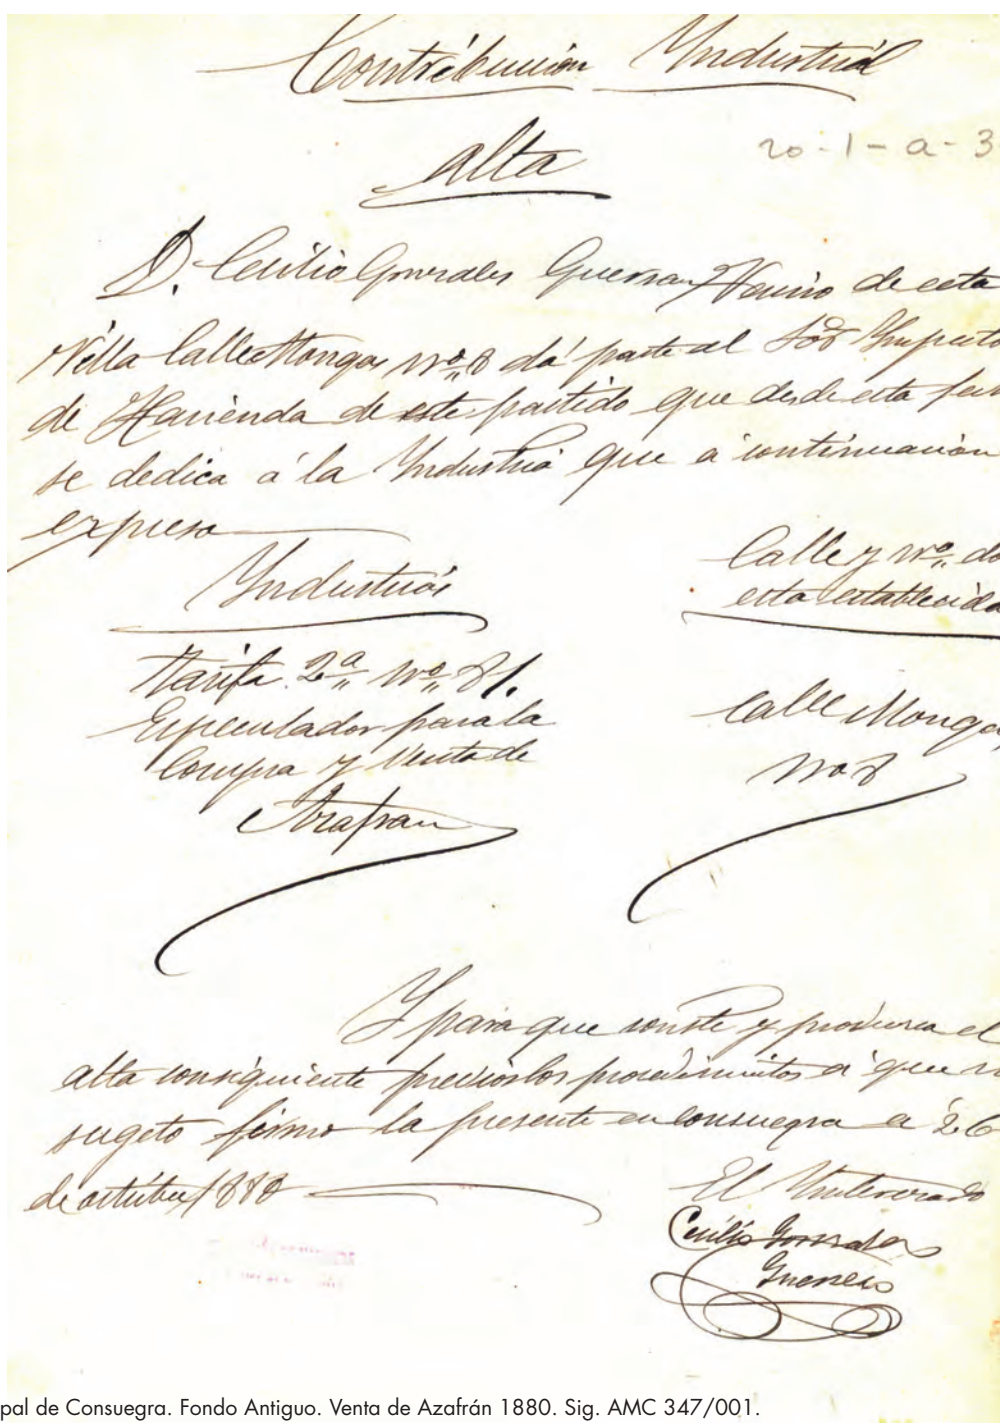 Contribucion Industrial
alta
20-1-a-3
D. Cecilio Gonzales Guerrero Vecino de esta
Villa Calle Monjas nº 8 dá parte al Sor Ynspecto
de Hacienda de este partido que desde esta fec
se dedica á la Yndustria que á continuacion
expresa
Yndustrias
Calle y nº do
esta establecida
Tarifa 2ª nº 81.
Especulador para la
Compra y Venta de
Azafran
Calle Monjas
nº 8
Y para que conste y produzca el
alta consiguiente previos los procedimientos á que
sugeto firmo la presente en Consuegra a 26
de octubre 1880
El Ynteresado
Cecilio Gonzales
Guerrero
pal de Consuegra. Fondo Antiguo. Venta de Azafrán 1880. Sig. AMC 347/001.